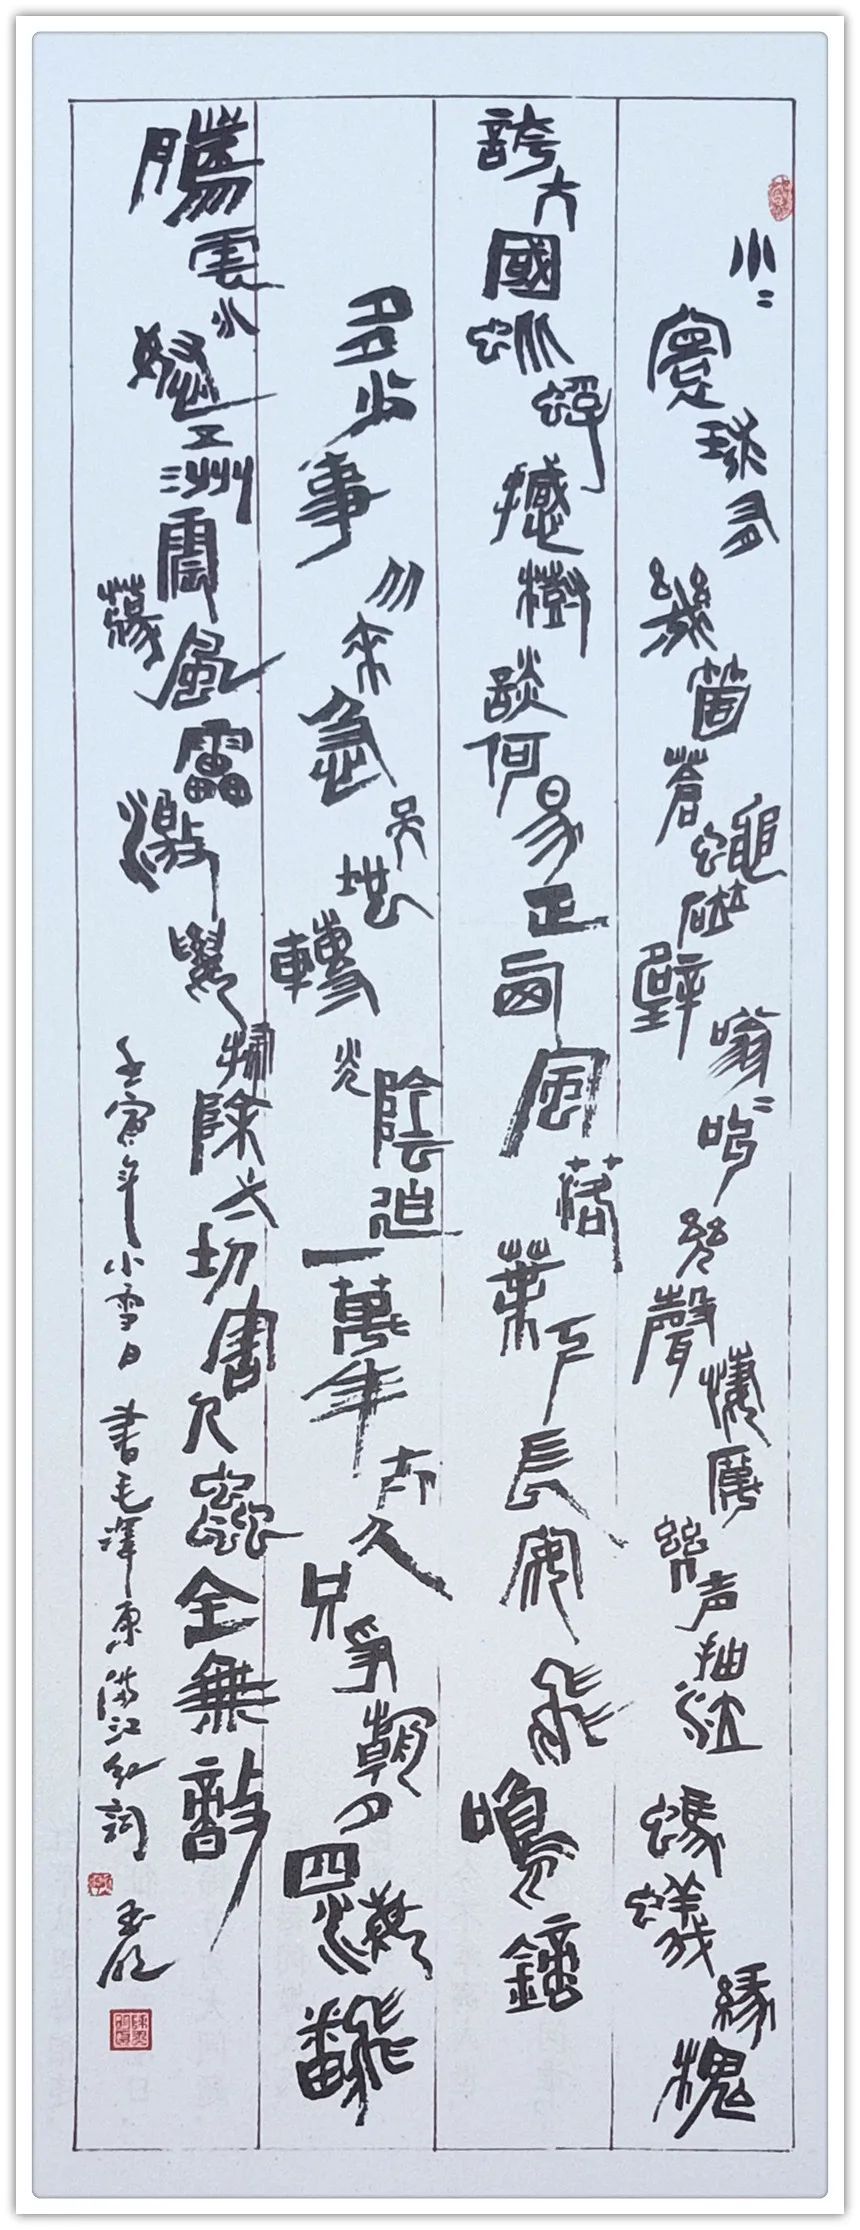 小〻寰球有幾箇蒼蠅碰壁嗡〻叫幾聲淒厲幾声抽泣螞蟻緣槐
誇大國蚍蜉撼樹談何易正西風落葉下長安飛鳴鏑
多少事從來急天地轉光陰迫一萬年太久只爭朝夕四海翻
騰雲水怒五洲震蕩風雷激要掃除一切害人蟲全無敵
壬寅年小雪日書毛澤東滿江紅詞